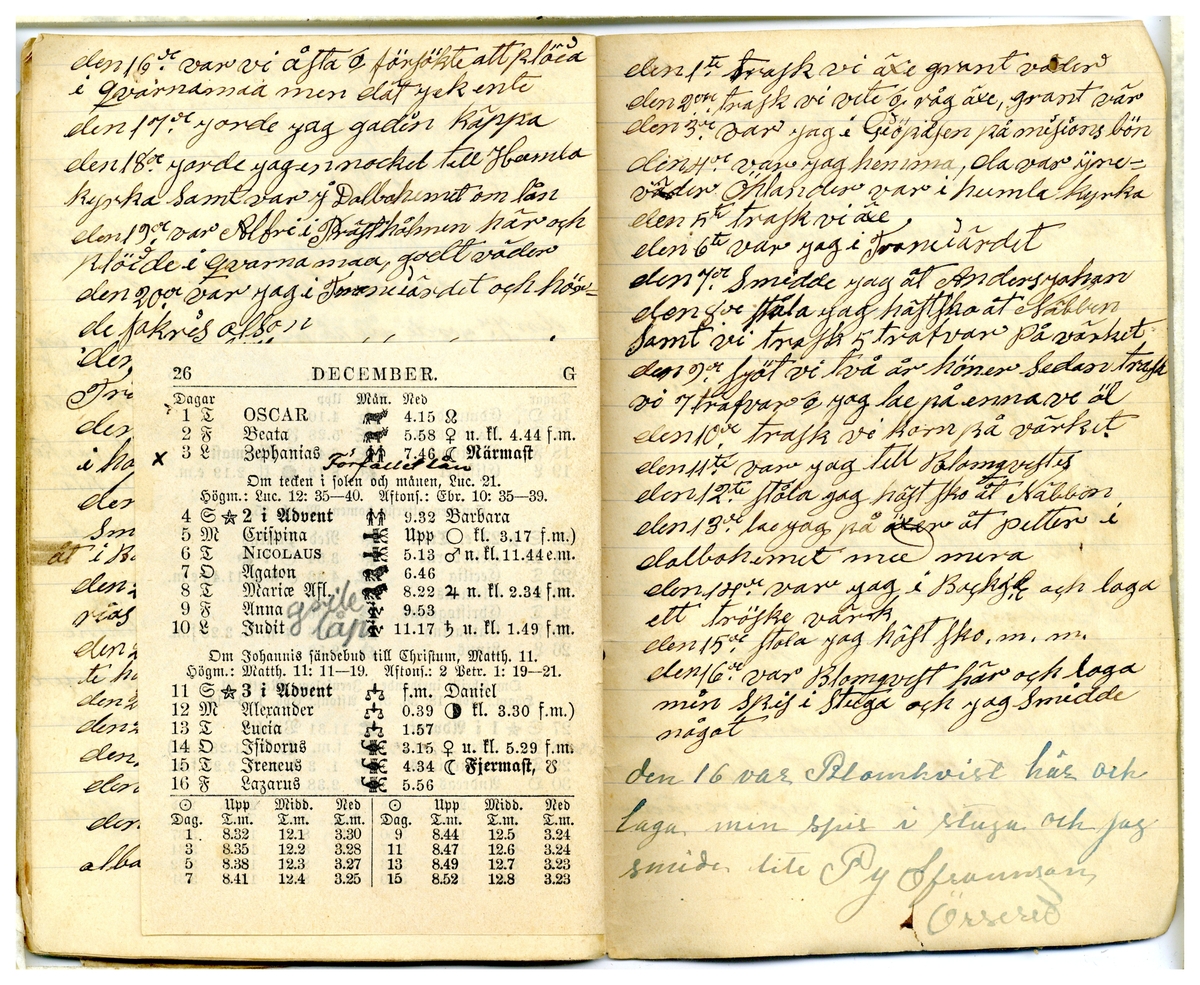 den 16de var vi åsta å försökte att klöva
i qvarnamaa men dät jek ente
den 17de yorde yag gadin käppa
den 18de yorde yag en nockel till Humla
kyrka Samt var i Dalbohemet om lån
den 19de var Alfri i Prästholmen här och
klövde i qvarnamaa, goelt väder
den 20de var yag i och hör=
de jakrès olson
den
Tra
den
i ho
den
Sm
åt i B
den 2
den 2
te h
den 2
den 2
den
den
den
alba
26 DECEMBER. G
Dagar Mån. Ned
1 T OSCAR 4.15 ♌
2 F Beata 5.58 ♀ u. kl. 4.44 f.m.
x 3 L Zephanias 7.46 ☾ Närmast
Förfallet lån
Om tecken i solen och månen, Luc. 21.
Högm.: Luc. 12: 35—40. Aftons.: Ebr. 10: 35—39.
4 S ☆ 2 i Advent 9.32 Barbara
5 M Crispina Upp ○ kl. 3.17 f.m.)
6 T NICOLAUS 5.13 ♂ n. kl. 11.44 e.m.
7 O Agaton 6.46
8 T Mariæ Afl. 8.22 ♃ n. kl. 2.34 f.m.
9 F Anna 9.53
10 L Judit 11.17 ♄ u. kl. 1.49 f.m.
Om Johannis sändebud till Christum, Matth. 11.
Högm.: Matth. 11: 11—19. Aftons.: 2 Petr. 1: 19—21.
11 S ☆ 3 i Advent f.m. Daniel
12 M Alexander 0.39 ◑ kl. 3.30 f.m.)
13 T Lucia 1.57
14 O Isidorus 3.15 ♀ u. kl. 5.29 f.m.
15 T Ireneus 4.34 ☾ Fjermast, ☋
16 F Lazarus 5.56
☉ Upp Midd. Ned ☉ Upp Midd. Ned
Dag. T.m. T.m. T.m. Dag. T.m. T.m. T.m.
1 8.32 12.1 3.30 9 8.44 12.5 3.24
3 8.35 12.2 3.28 11 8.47 12.6 3.24
5 8.38 12.3 3.27 13 8.49 12.7 3.23
7 8.41 12.4 3.25 15 8.52 12.8 3.23
den 1te trask vi äxe grant väder
den 2dre trask vi vete å råg äxe, grant vär
den 3de var yag i Giöpåsen på misions bön
den 4de var yag hemma, da var yne=
väder Öhlander var i humla kyrka
den 5te trask vi äxe
den 6te var yag i
den 7de Smidde yag åt Andersjohan
den 8de skola yag hästsko åt Näbben
Samt vi trask 5 trafvar på värket
den 9de sjöt vi två år höner Sedan trask
vi 7 trafvar å yag lae på enna ve öl
den 10de trask vi korn på värket
den 11te var yag till Blomqvistes
den 12te skola yag häst sko åt Näbben
den 13de lae yag på åt petter i
dalbohemet mee mera
den 14de var yag i och laga
ett tröske värck,
den 15de skola yag häst sko, m. m.
den 16de var Blomqvist här och laga
min Spis i Stuga och yag Smidde
något
den 16 var Blomkvist här och
laga min spis i stuga och jag
smide lite